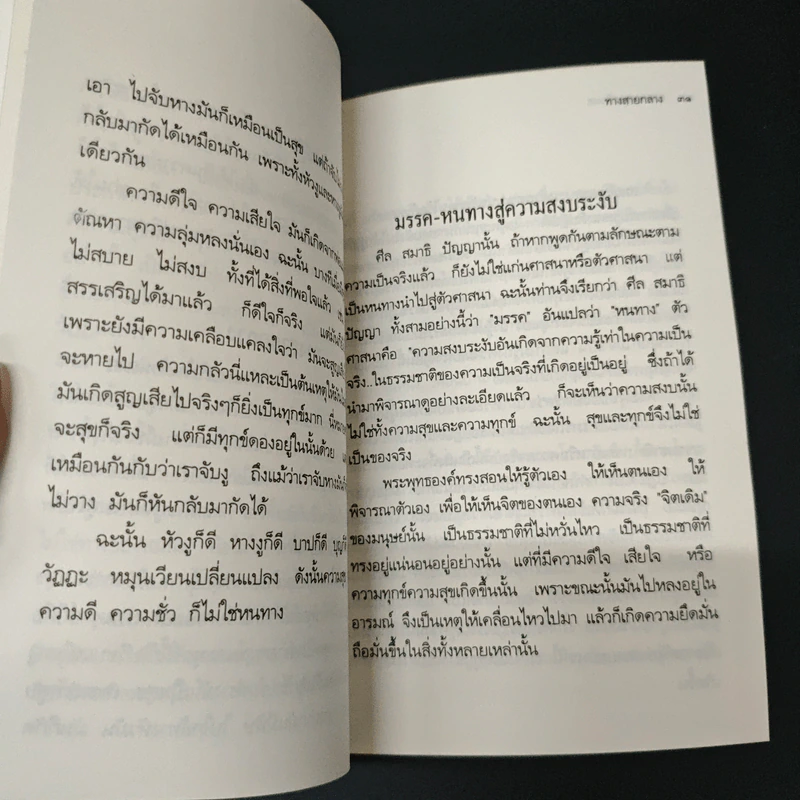 เอา ไปจับหางมันก็เหมือนเป็นสุข
กลับมากัดได้เหมือนกัน เพราะทั้งหัวงูและหางงู
เดียวกัน
ความดีใจ ความเสียใจ มันก็เกิดจาก
ตัณหา ความลุ่มหลงนั่นเอง ฉะนั้น บางที
ไม่สบาย ไม่สงบ ทั้งที่ได้สิ่งที่พอใจแล้ว
สรรเสริญได้มาแล้ว ก็ดีใจก็จริง
เพราะยังมีความเคลือบแคลงใจว่า มันจะสูญ
จะหายไป ความกลัวนี่แหละเป็นต้นเหตุให้
มันเกิดสูญเสียไปจริงๆก็ยิ่งเป็นทุกข์มาก
จะสุขก็จริง แต่ก็มีทุกข์ดองอยู่ในนั้นด้วย
เหมือนกันกับว่าเราจับงู ถึงแม้ว่าเราจับหาง
ไม่วาง มันก็หันกลับมากัดได้
ฉะนั้น หัวงูก็ดี หางงูก็ดี บาปก็ดี
วัฏฏะ หมุนเวียนเปลี่ยนแปลง ดังนั้นความสุข
ความดี ความชั่ว ก็ไม่ใช่หนทาง
ทางสายกลาง ๓๑
มรรค-หนทางสู่ความสงบระงับ
ศีล สมาธิ ปัญญานั้น ถ้าหากพูดกันตามลักษณะตาม
ความเป็นจริงแล้ว ก็ยังไม่ใช่แก่นศาสนาหรือตัวศาสนา แต่
เป็นหนทางนำไปสู่ตัวศาสนา ฉะนั้นท่านจึงเรียกว่า ศีล สมาธิ
ปัญญา ทั้งสามอย่างนี้ว่า "มรรค" อันแปลว่า "หนทาง" ตัว
ศาสนาคือ "ความสงบระงับอันเกิดจากความรู้เท่าในความเป็น
จริง..ในธรรมชาติของความเป็นจริงที่เกิดอยู่เป็นอยู่ ซึ่งถ้าได้
นำมาพิจารณาดูอย่างละเอียดแล้ว ก็จะเห็นว่าความสงบนั้น
ไม่ใช่ทั้งความสุขและความทุกข์ ฉะนั้น สุขและทุกข์จึงไม่ใช่
เป็นของจริง
พระพุทธองค์ทรงสอนให้รู้ตัวเอง ให้เห็นตนเอง ให้
พิจารณาตัวเอง เพื่อให้เห็นจิตของตนเอง ความจริง "จิตเดิม"
ของมนุษย์นั้น เป็นธรรมชาติที่ไม่หวั่นไหว เป็นธรรมชาติที่
ทรงอยู่แน่นอนอยู่อย่างนั้น แต่ที่มีความดีใจ เสียใจ หรือ
ความทุกข์ความสุขเกิดขึ้นนั้น เพราะขณะนั้นมันไปหลงอยู่ใน
อารมณ์ จึงเป็นเหตุให้เคลื่อนไหวไปมา แล้วก็เกิดความยึดมั่น
ถือมั่นขึ้นในสิ่งทั้งหลายเหล่านั้น